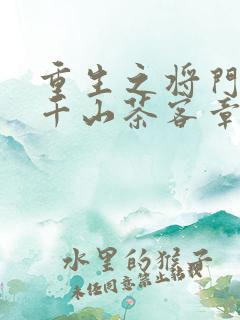 重生之将门
千山茶客章
水里的猴子
未经同意禁止转载